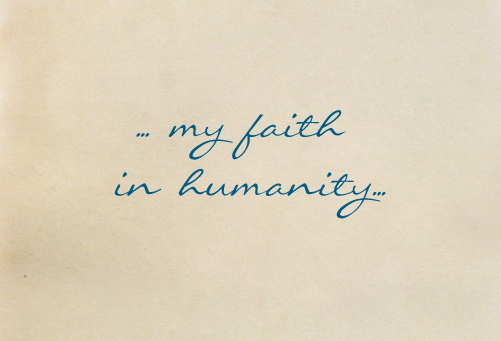 ... my faith
in humanity...